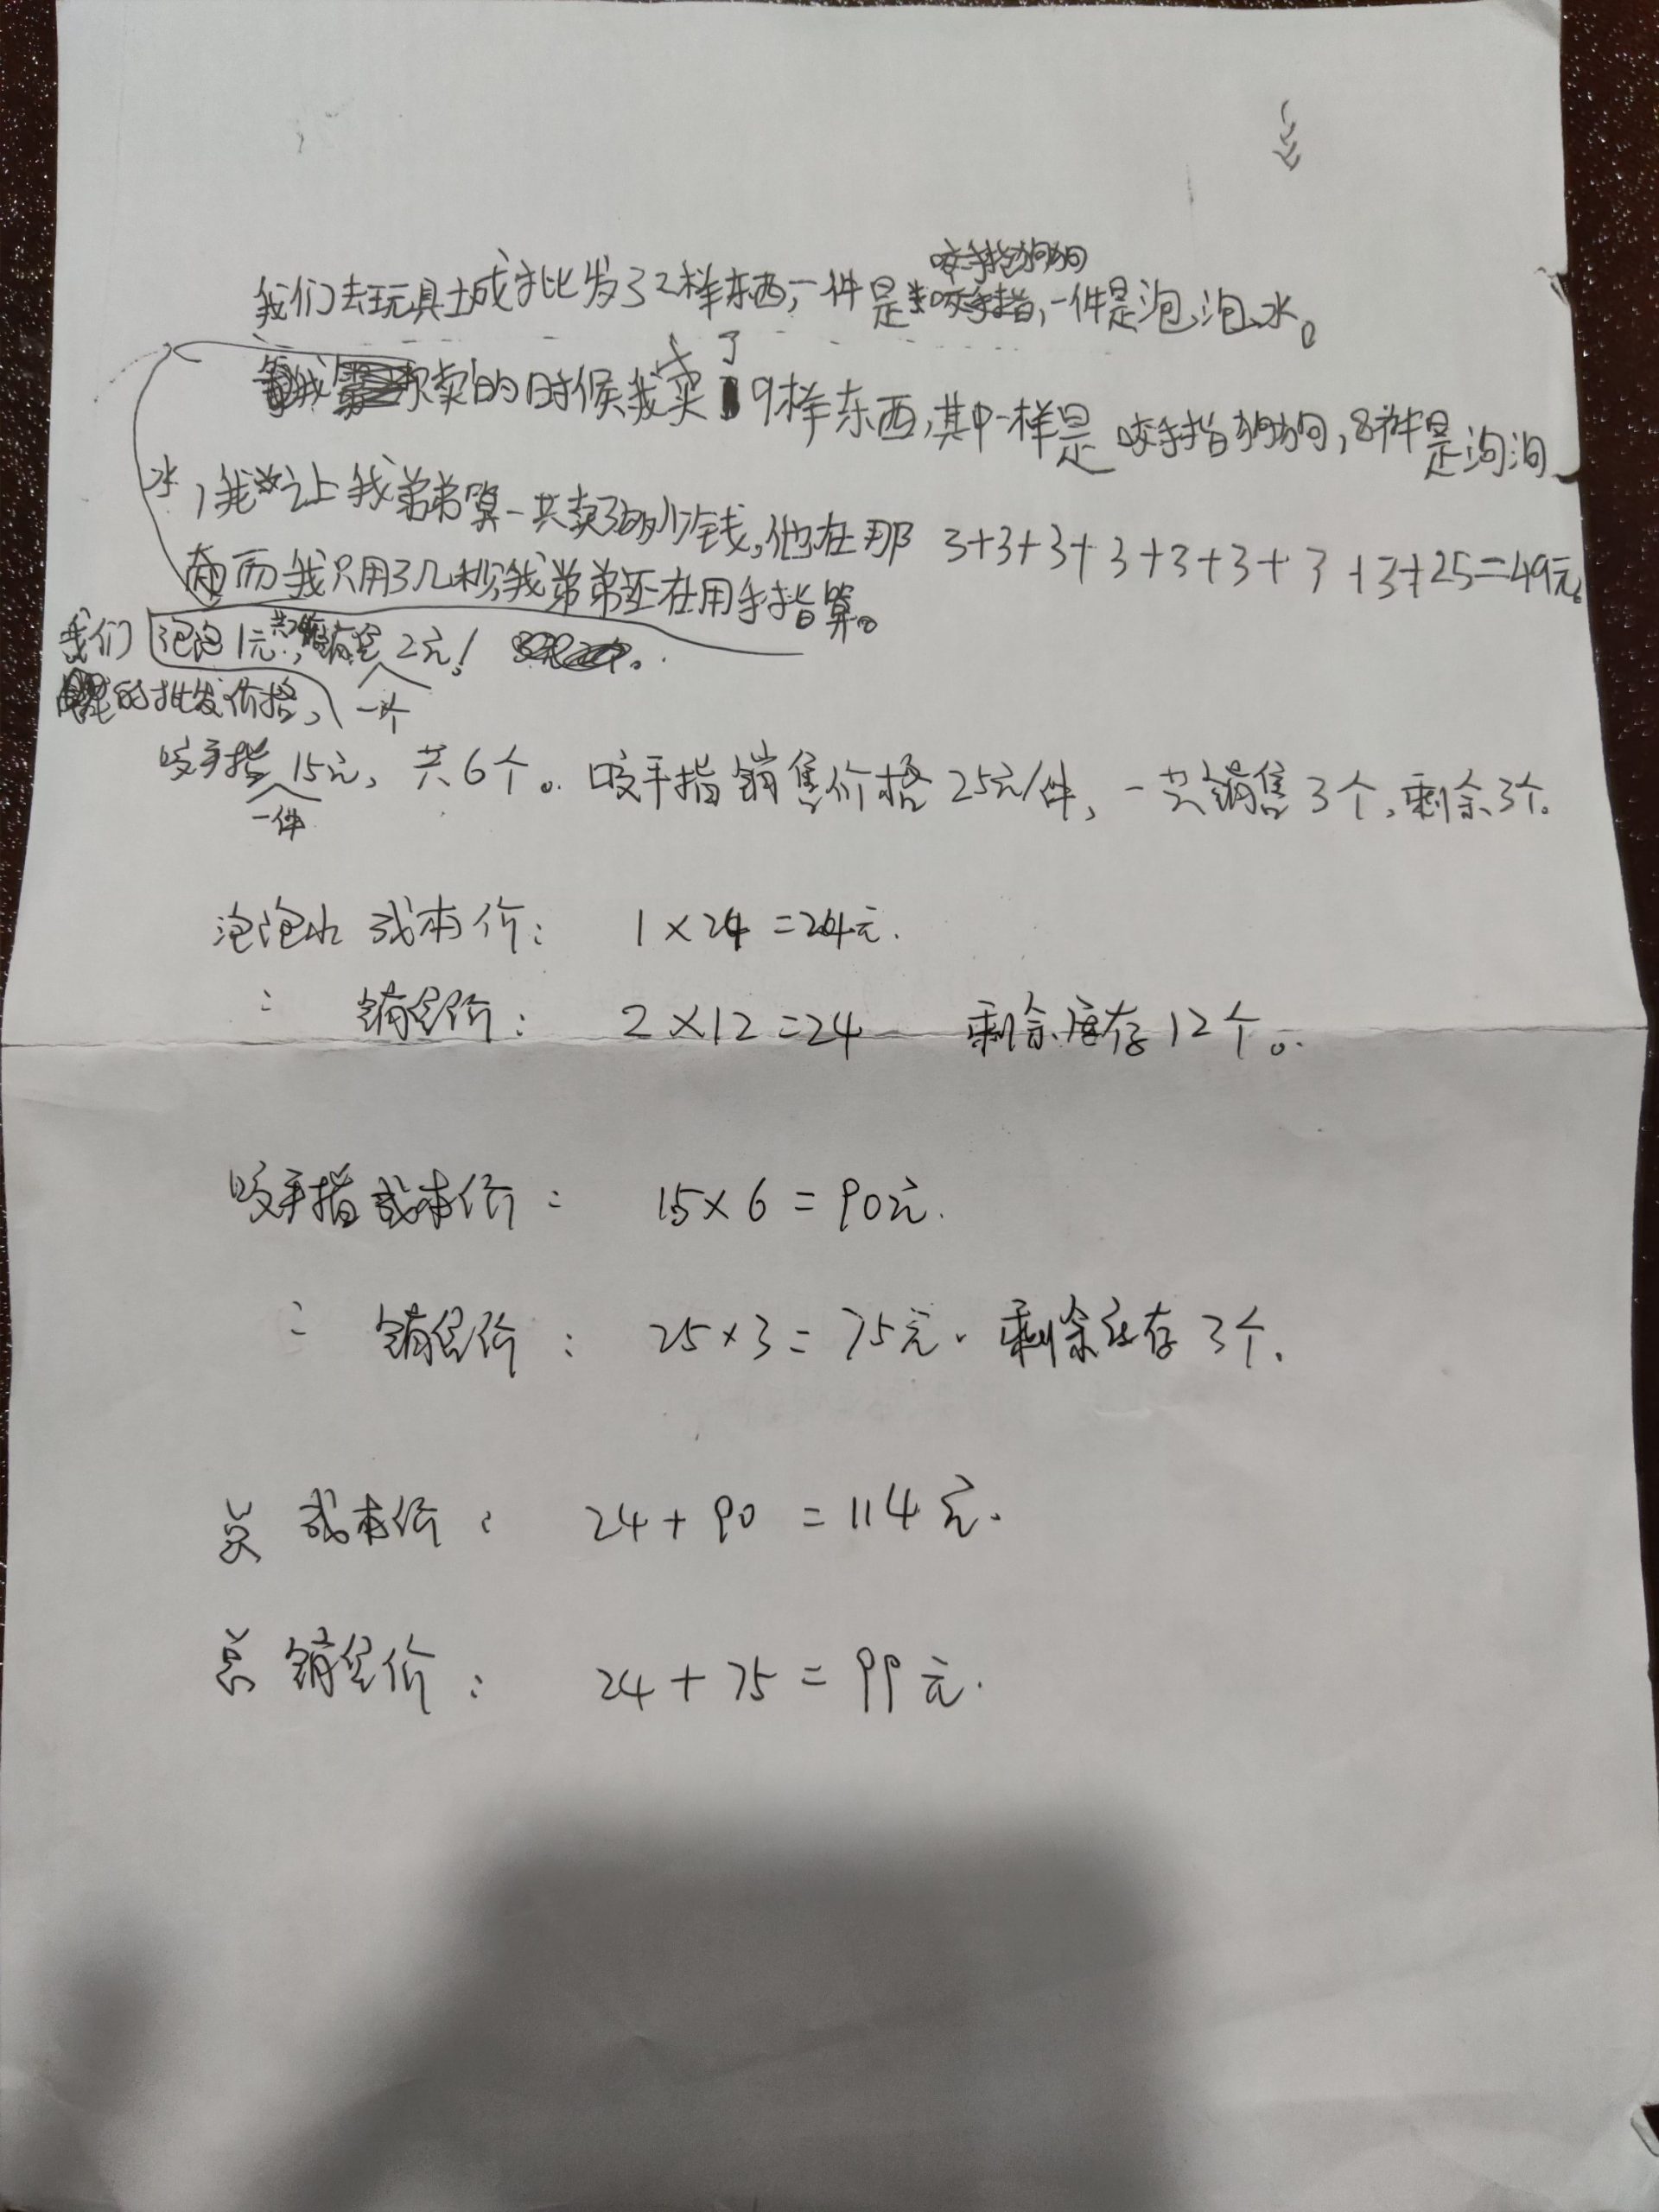 咬手指狗狗
我们去玩具城批发了2样东西,一件是咬手指,一件是泡泡水。
我卖的时候,我卖了9样东西,其中一样是咬手指狗狗,8样是泡泡
水,我让我弟弟算一共卖了多少钱,他在那 3+3+3+3+3+3+3+3+25=49元。
而我只用了几秒,我弟弟还在用手指算。
我们 泡泡1元,共24个,销售2元!
的批发价格, 一个
咬手指15元,共6个。咬手指销售价格25元/件,一共销售3个,剩余3个。
一件
泡泡水成本价: 1×24=24元.
: 销售价: 2×12=24 剩余库存12个。
咬手指成本价: 15×6=90元.
: 销售价: 25×3=75元. 剩余库存3个.
总成本价: 24+90=114元.
总销售价: 24+75=99元.